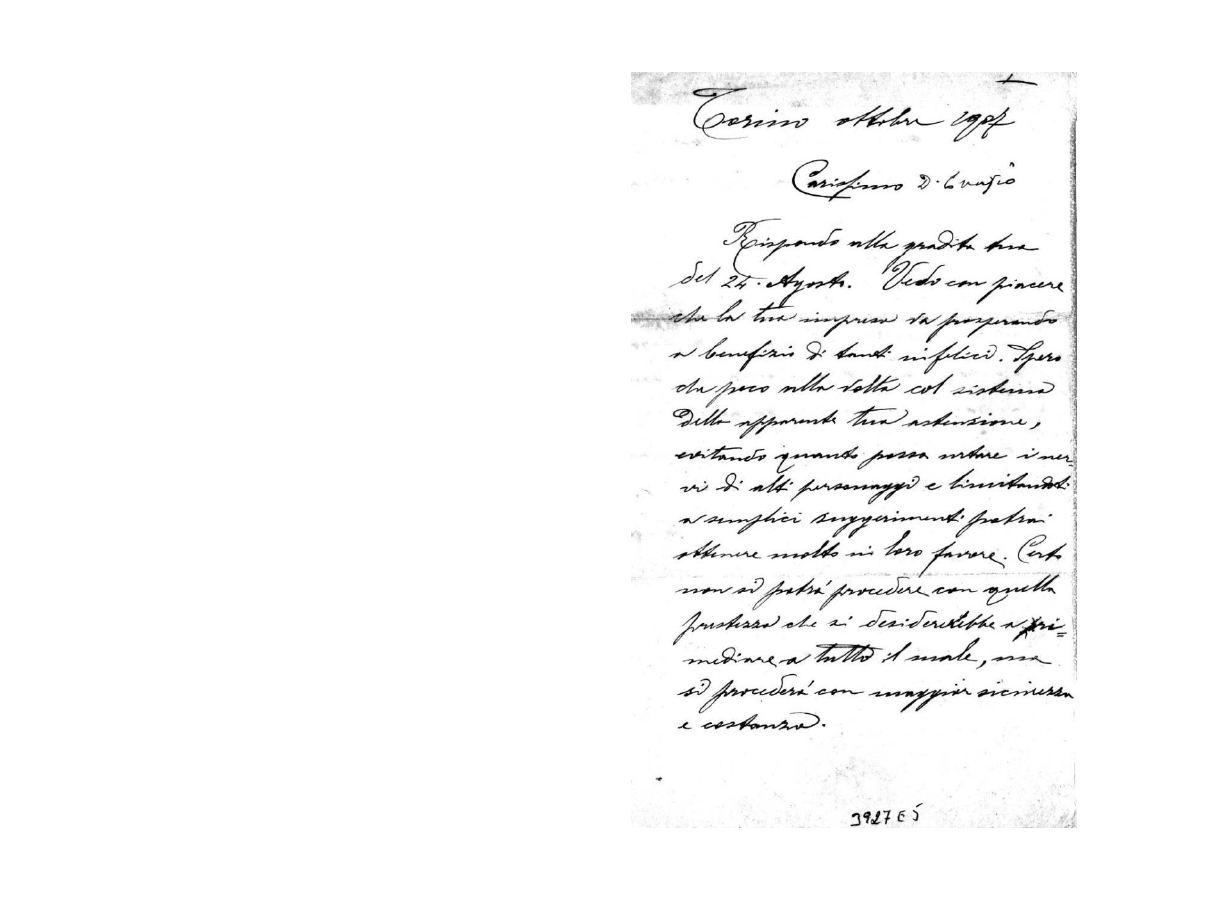 Torino ottobre 1907
Carissimo D. Evasio
Rispondo alla gradita tua
del 24. Agosto. Vedo con piacere
che la tua impresa va prosperando
a benefizio di tanti infelici. Spero
che poco alla volta col sistema
della apparente tua astensione,
evitando quanto possa urtare i ner=
vi di alti personaggi e limitandoti
a semplici suggerimenti potrai
ottenere molto in loro favore. Certo
non si potrá procedere con quella
prestezza che si desidererebbe a ri=
mediare a tutto il male, ma
si procederá con maggior sicurezza
e costanza.
3927 E 5